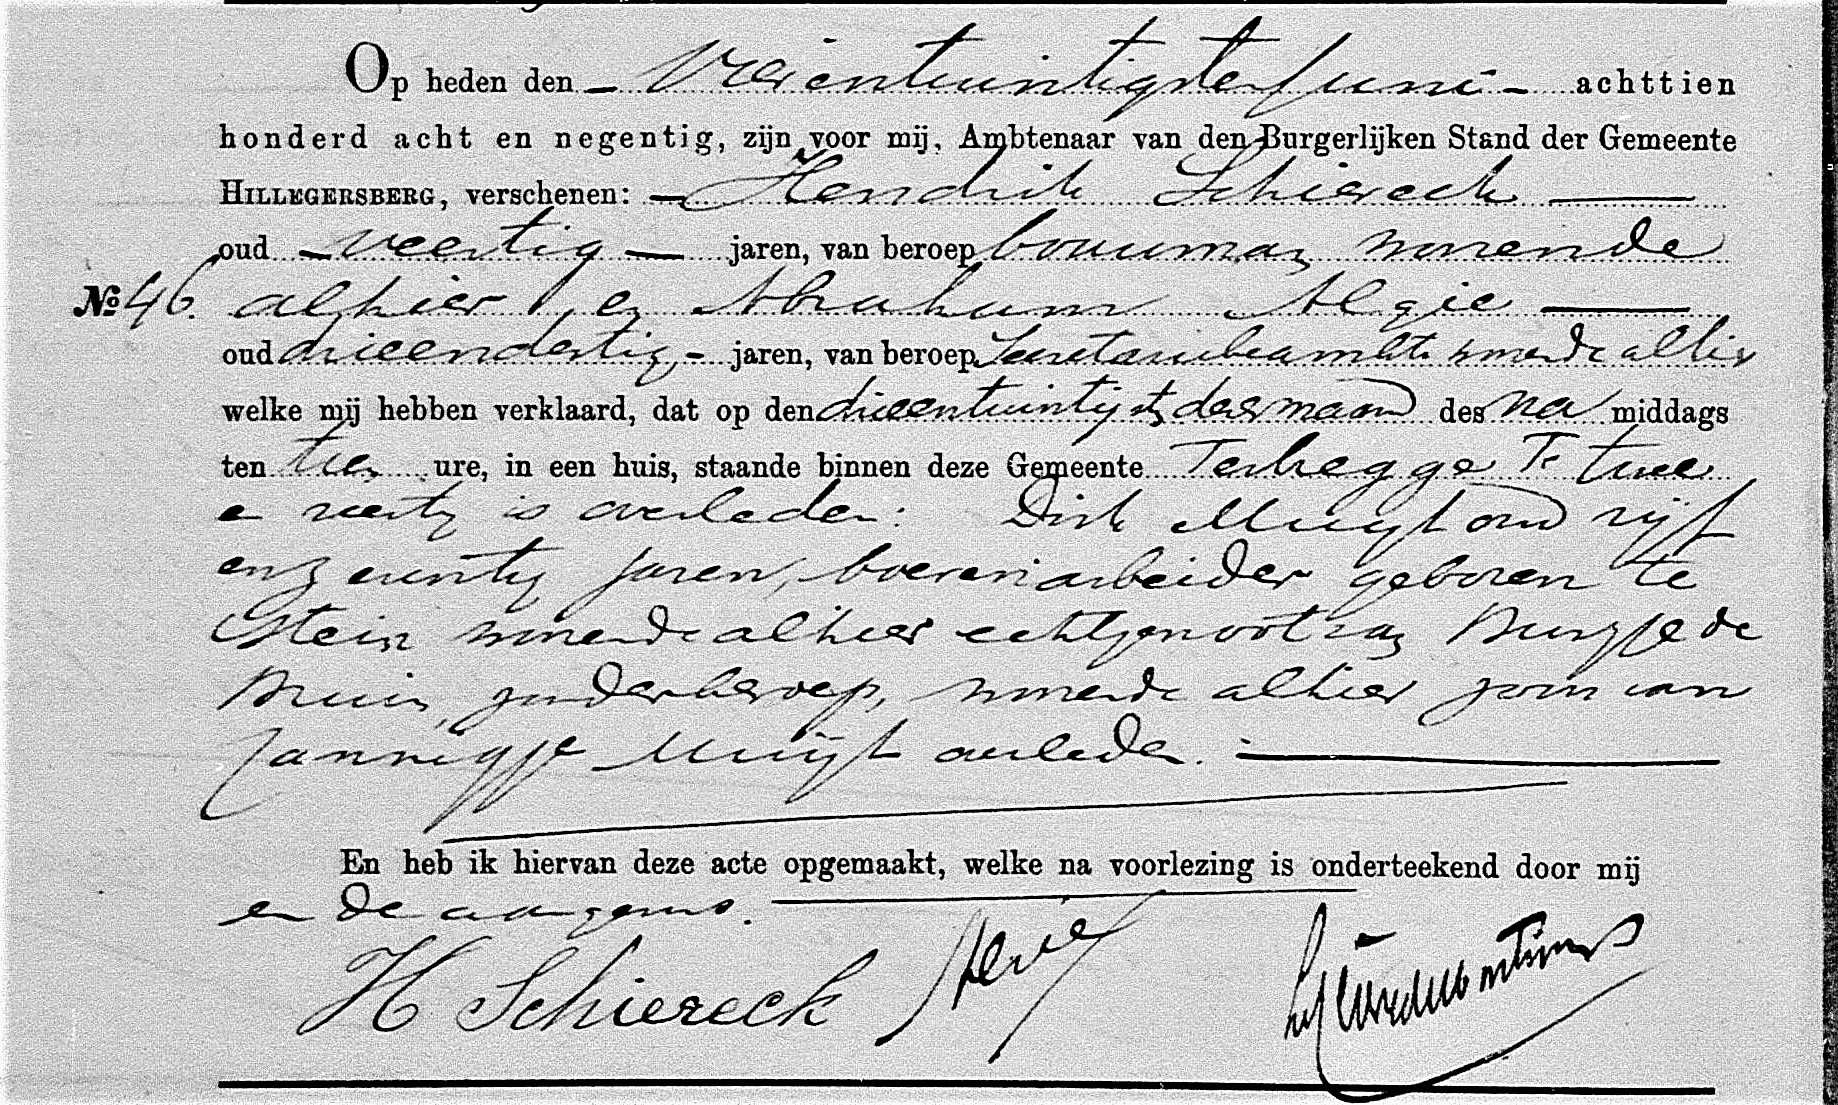 Op heden den vierentwintigsten Juni achttien
honderd acht en negentig, zijn voor mij, Ambtenaar van den Burgerlijken Stand der Gemeente
HILLEGERSBERG, verschenen: Hendrik Schiereck
oud veertig jaren, van beroep bouwman wonende
No 46. alhier, en Abraham Algie
oud drieendertig jaren, van beroep Secretariebeambte wonende alhier
welke mij hebben verklaard, dat op den drieentwintigsten dezer maand des na middags
ten tien ure, in een huis, staande binnen deze Gemeente Terbregge T. twee
en veertig is overleden: Dirk Muijt oud vijf
en zeventig jaren, boerenarbeider geboren te
Stein wonende alhier echtgenoot van Burgje de
Bruin, zonder beroep, wonende alhier zoon van
Jannigje Muijt overleden.
En heb ik hiervan deze acte opgemaakt, welke na voorlezing is onderteekend door mij
en de aangevers.
H Schiereck Algie